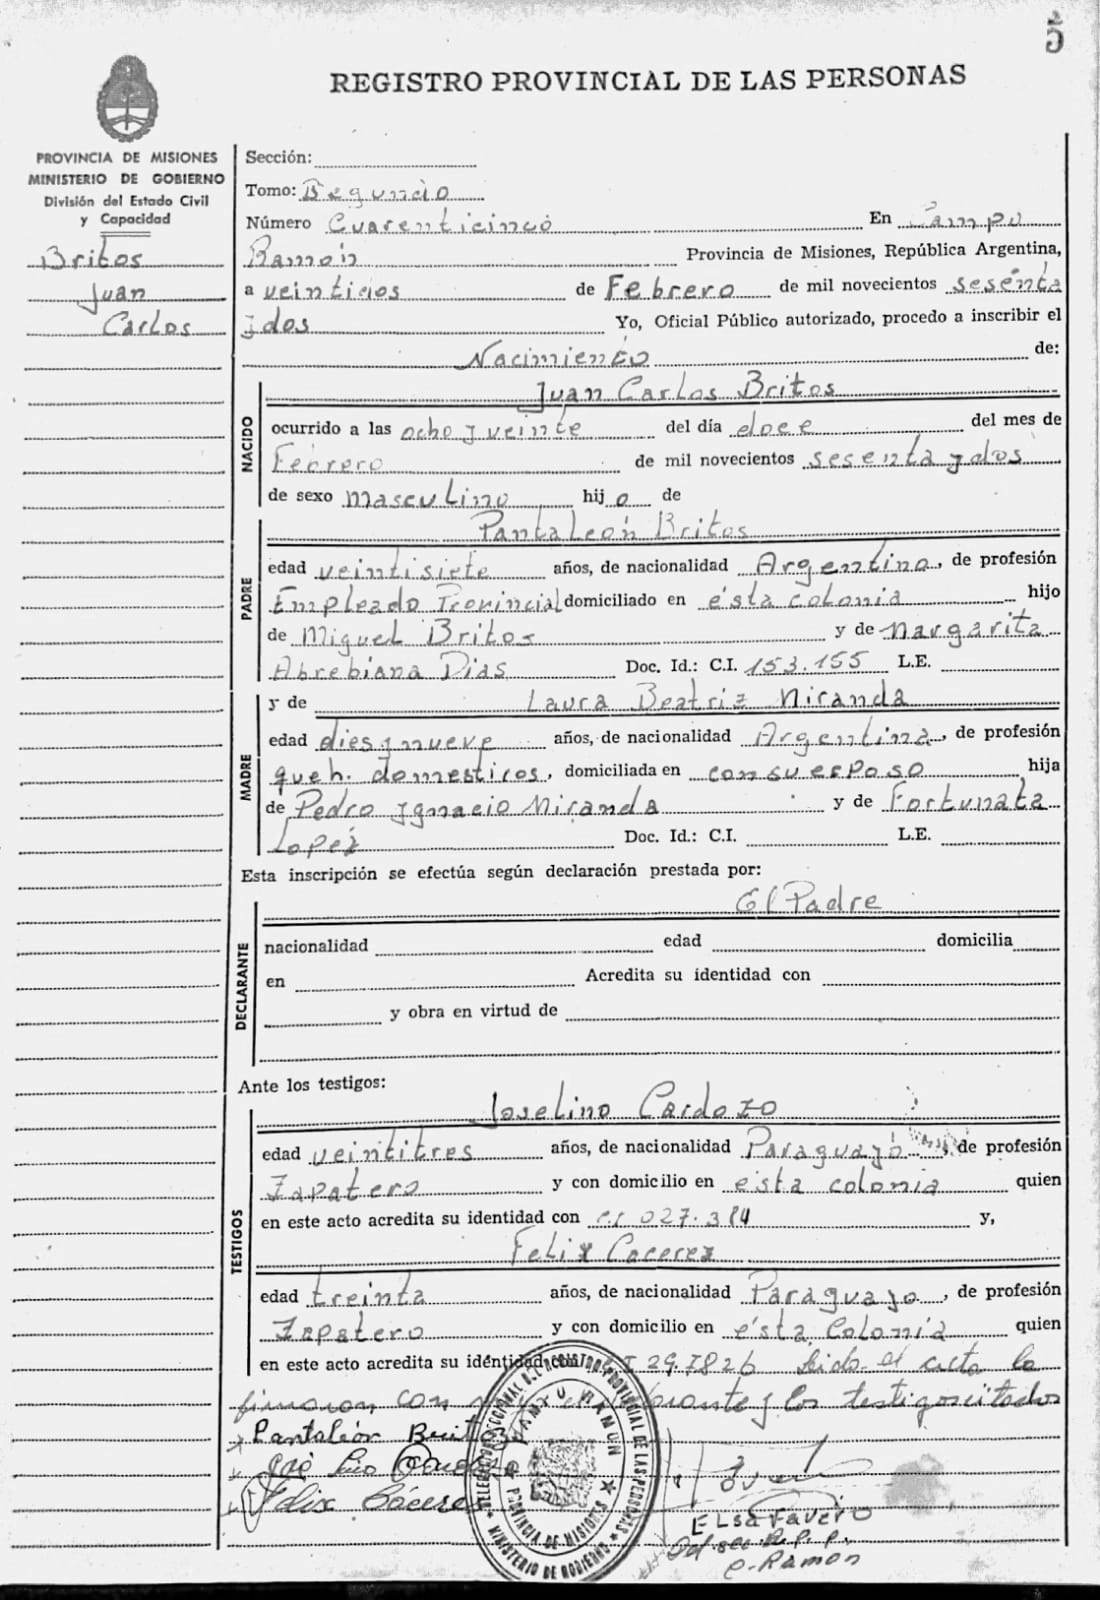 5
REGISTRO PROVINCIAL DE LAS PERSONAS
PROVINCIA DE MISIONES
MINISTERIO DE GOBIERNO
División del Estado Civil
y Capacidad
Britos
Juan
Carlos
Sección:
Tomo: Segundo
Número Cuarenticinco En Campo
Ramón Provincia de Misiones, República Argentina,
a veintidos de Febrero de mil novecientos sesénta
y dos Yo, Oficial Público autorizado, procedo a inscribir el
Nacimiento de:
NACIDO
Juan Carlos Britos
ocurrido a las ocho y veinte del día doce del mes de
Febrero de mil novecientos sesenta y dos
de sexo masculino hijo de
PADRE
Pantaleón Britos
edad veintisiete años, de nacionalidad Argentino, de profesión
Empleado Provincial domiciliado en ésta colonia hijo
de Miguel Britos y de Margarita
Abrebiana Dias Doc. Id.: C.I. 153.155 L.E.
MADRE
y de Laura Beatriz Miranda
edad dies y nueve años, de nacionalidad Argentina, de profesión
queh. domesticos, domiciliada en con su esposo hija
de Pedro Ygnacio Miranda y de Fortunata
Lopéz Doc. Id.: C.I. L.E.
Esta inscripción se efectúa según declaración prestada por:
DECLARANTE
El Padre
nacionalidad edad domicilia
en Acredita su identidad con
y obra en virtud de
Ante los testigos:
TESTIGOS
Joselino Cardozo
edad veintitres años, de nacionalidad Paraguayo, de profesión
Zapatero y con domicilio en ésta colonia quien
en este acto acredita su identidad con c.i 027.384 y,
Felix Caceres
edad treinta años, de nacionalidad Paraguayo, de profesión
Zapatero y con domicilio en ésta Colonia quien
en este acto acredita su identidad con 29.7826 Leida el acta la
firmaron con y los testigos citados
Pantaleón Britos
Félix Cáceres
DELEGACION SECCIONAL DEL REGISTRO PROVINCIAL DE LAS PERSONAS
CAMPO RAMON
PROVINCIA DE MISIONES
MINISTERIO DE GOBIERNO
ELsa Favero
C. Ramon